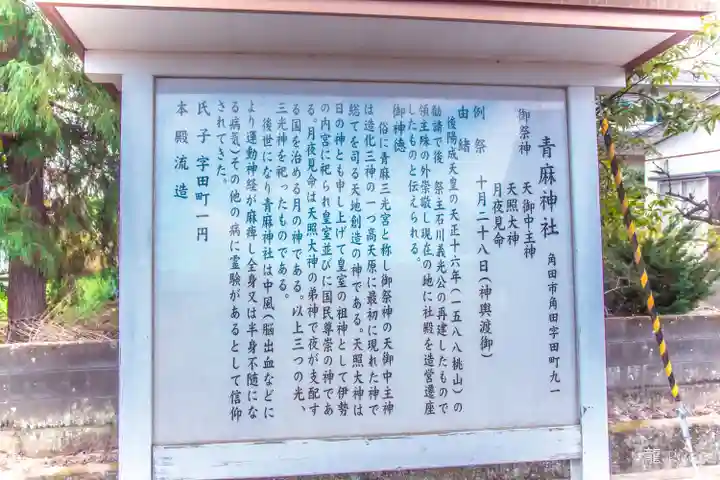 青麻神社
角田市角田字田町九一
御祭神
天御中主神
天照大神
月夜見命
例祭 十月二十八日(神輿渡御)
由緒
後陽成天皇の天正十六年(一五八八桃山)の
勧請で後、祭主石川義光公の再建したもので
領主殊の外崇敬し現在の地に社殿を造営遷座
したものと伝えられる。
御神徳
俗に青麻三光宮と称し御祭神の天御中主神
は造化三神の一つ高天原に最初に現れた神で
総てを司る天地創造の神である。天照大神は
日の神とも申し上げて皇室の祖神として伊勢
の内宮に祀られ皇室並びに国民尊崇の神であ
る。月夜見命は天照大神の弟神で夜が支配す
る国を治める月の神である。以上三つの光、
三光神を祀ったものである。
後世になり青麻神社は中風(脳出血などに
より運動神経が麻痺し全身又は半身不随にな
る病気)その他の病に霊験があるとして信仰
されてきた。
氏子 字田町一円
本殿流造